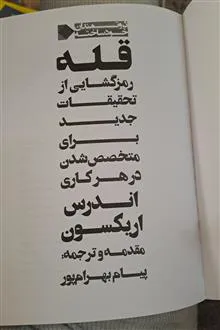 قله
رمزگشایی از
تحقیقات
جدید
برای
متخصص‌شدن
در هر کاری
اندرس
اریکسون
مقدمه و ترجمه:
پیام بهرام‌پور